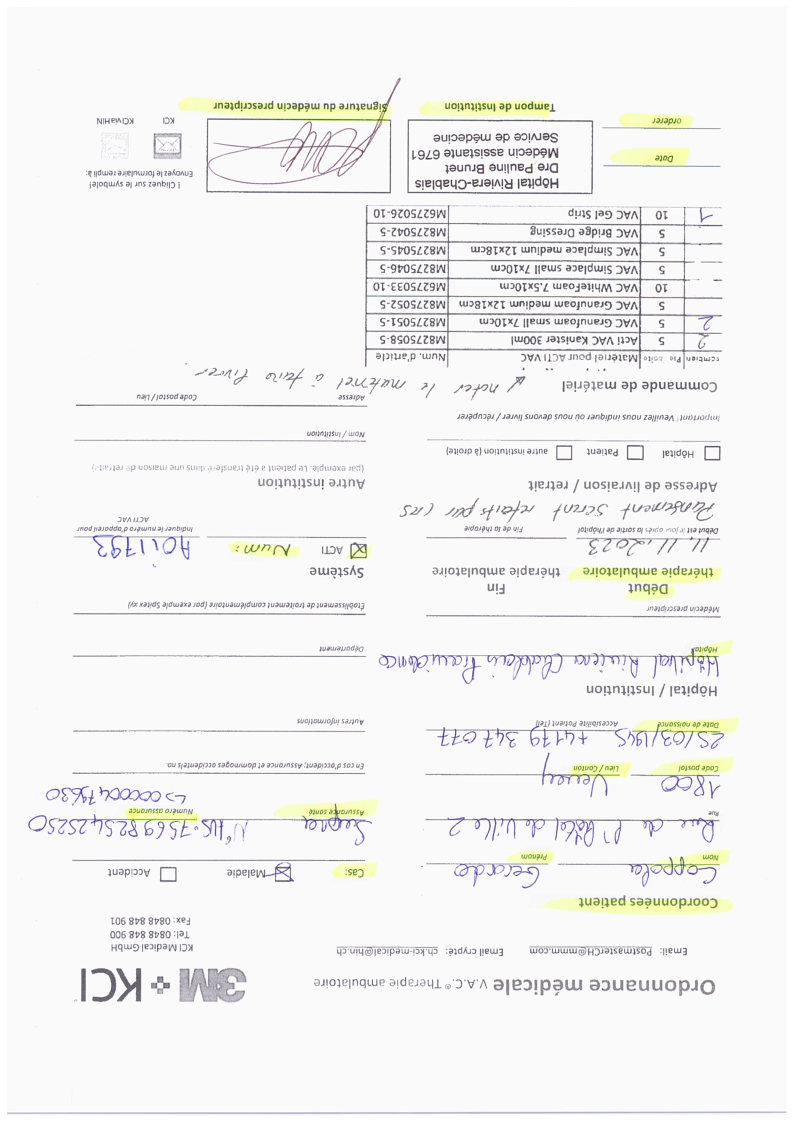 Ordonnance médicale V.A.C.® Therapie ambulatoire
3M + KCI
Email: PostmasterCH@mmm.com Email crypté: ch.kci-medical@hin.ch
KCI Medical GmbH
Tel: 0848 848 900
Fax: 0848 848 901
Coordonnées patient
Coppola Gerardo
Nom Prénom
Rue de l'Hôtel de Ville 2
Rue
1800 Vevey
Code postal Lieu / Canton
25/03/1945 +4179 347 077
Date de naissance Accesibilité Patient (Tel)
Cas: Maladie Accident
N° AVS: 7569825425250
Assurance santé Numéro assurance
En cas d'accident; Assurance et dommages accidentels no.
Autres informations
Hôpital / Institution
Hôpital Riviera Chablais
Hôpital
Département
Médecin prescripteur
Etablissement de traitement complémentaire (par exemple Spitex xy)
Début Fin
thérapie ambulatoire thérapie ambulatoire
11.11.2023
Début est le jour après la sortie de l'hôpital Fin de la thérapie
Pansement seront refaits par
Système
ACTI Num:
Indiquer le numéro d'appareil pour
ACTI VAC
Adresse de livraison / retrait
Hôpital Patient autre institution (à droite)
Important! Veuillez nous indiquer où nous devons livrer / récupérer
Autre institution
(par exemple. Le patient a été transféré dans une maison de retraite)
Nom / Institution
Adresse Code postal / Lieu
Commande de matériel noter le matériel à faire livrer.
combien Pie boîte Matériel pour ACTI VAC Num. d'article
2 5 Acti VAC Kanister 300ml M8275058-5
2 5 VAC Granufoam small 7x10cm M8275051-5
5 VAC Granufoam medium 12x18cm M8275052-5
10 VAC WhiteFoam 7.5x10cm M6275033-10
5 VAC Simplace small 7x10cm M8275046-5
5 VAC Simplace medium 12x18cm M8275045-5
5 VAC Bridge Dressing M8275042-5
1 10 VAC Gel Strip M6275026-10
Date
orderer
Hôpital Riviera-Chablais
Dre Pauline Brunet
Médecin assistante 6761
Service de médecine
Tampon de Institution
Signature du médecin prescripteur
! Cliquez sur le symbole!
Envoyez le formulaire rempli à:
KCI KCIviaHIN